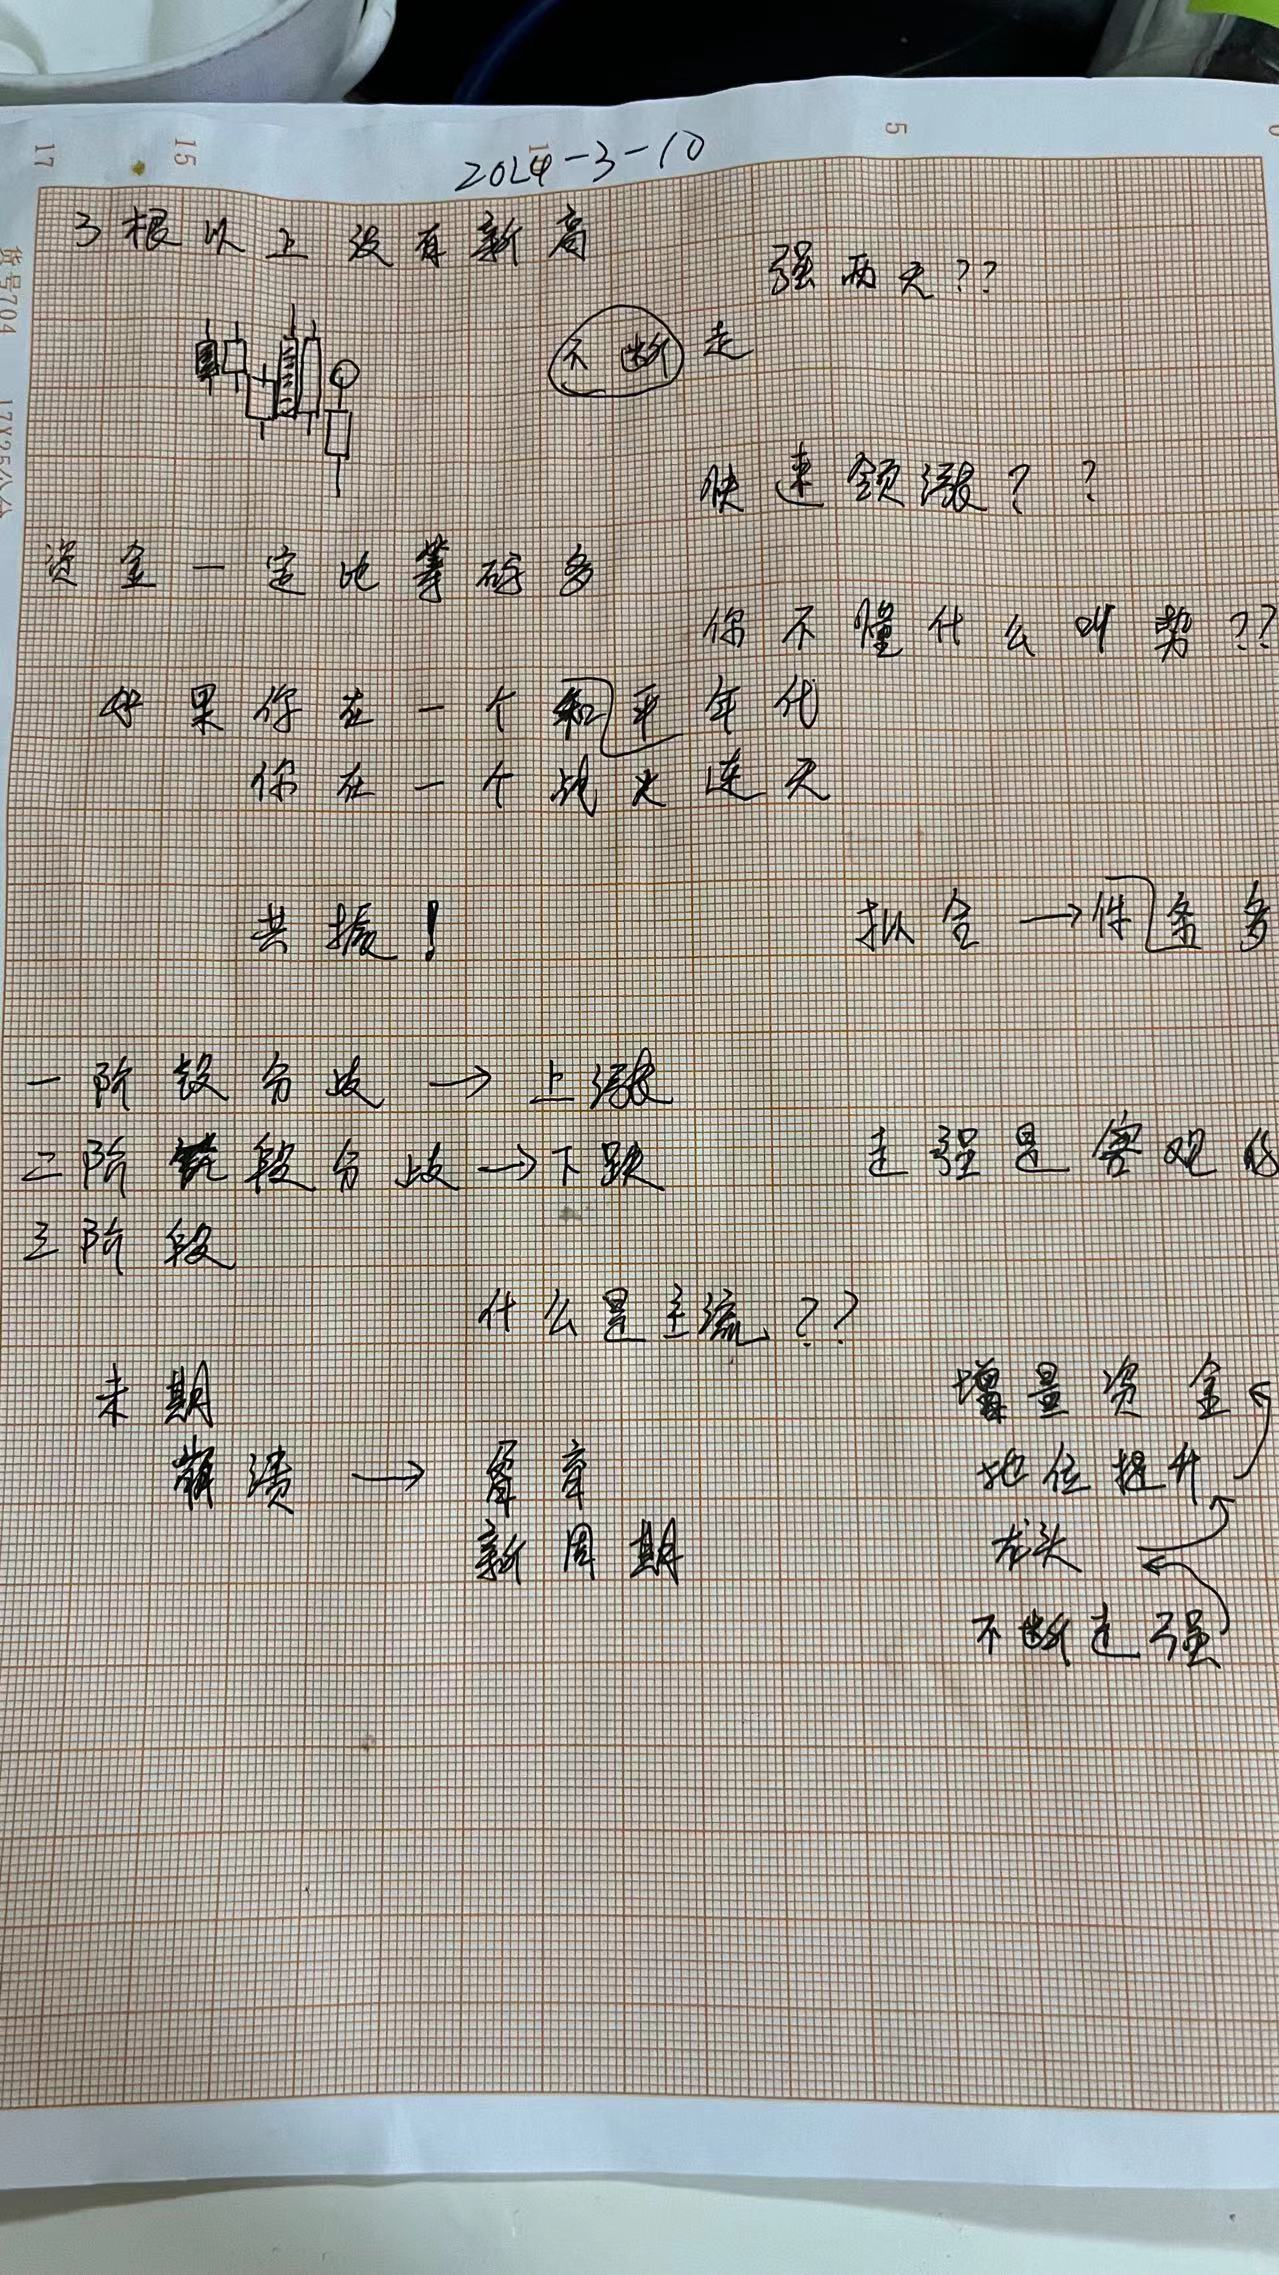 17
15
5
货号704
17X25公分
2024-3-10
3根以上没有新高
强两天??
不断走
快速领涨??
资金一定比筹码多
你不懂什么叫势??
如果你在一个和平年代
你在一个战火连天
共振!
拟全→件条多
一阶段分歧→上涨
二阶段分歧→下跌
走强是客观的
三阶段
什么是主流??
末期
增量资金
崩溃→
地位提升
新周期
龙头
不断走强